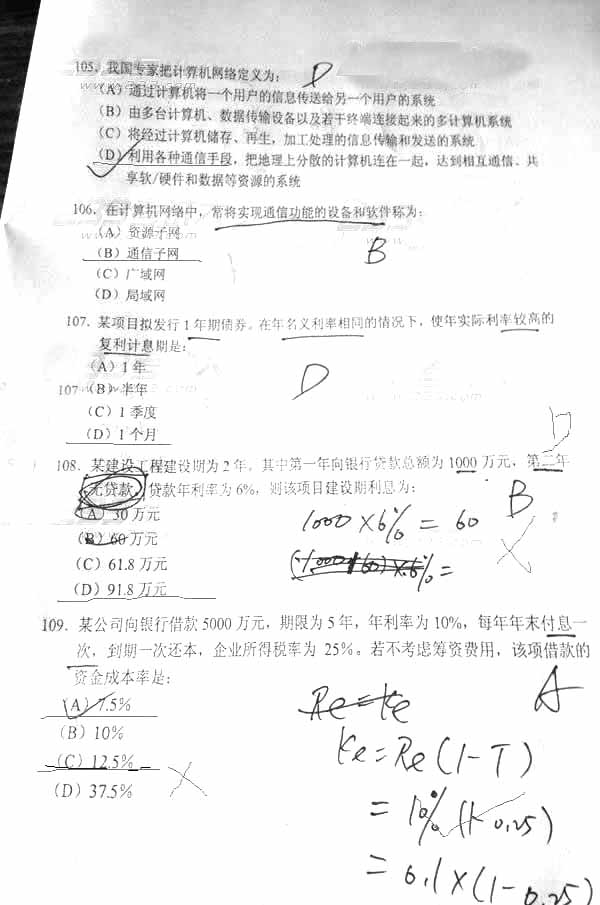 105、我国专家把计算机网络定义为： D
(A) 通过计算机将一个用户的信息传送给另一个用户的系统
(B) 由多台计算机、数据传输设备以及若干终端连接起来的多计算机系统
(C) 将经过计算机储存、再生，加工处理的信息传输和发送的系统
(D) 利用各种通信手段，把地理上分散的计算机连在一起，达到相互通信、共
享软/硬件和数据等资源的系统
106、在计算机网络中，常将实现通信功能的设备和软件称为：
(A) 资源子网
(B) 通信子网 B
(C) 广域网
(D) 局域网
107、某项目拟发行 1 年期债券。在年名义利率相同的情况下，使年实际利率较高的
复利计息期是：
(A) 1 年
107 (B) 半年 D
(C) 1 季度
(D) 1 个月
108、某建设工程建设期为 2 年，其中第一年向银行贷款总额为 1000 万元，第二年
无贷款，贷款年利率为 6%，则该项目建设期利息为：
(A) 30 万元 B
(B) 60 万元 1000×6% = 60
(C) 61.8 万元
(D) 91.8 万元
109、某公司向银行借款 5000 万元，期限为 5 年，年利率为 10%，每年年末付息一
次，到期一次还本，企业所得税率为 25%。若不考虑筹资费用，该项借款的
资金成本率是： A
(A) 7.5% Re=Ke
(B) 10% Ke=Re(1-T)
(C) 12.5%
(D) 37.5% = 10%(1-0.25)
= 0.1×(1-0.25)